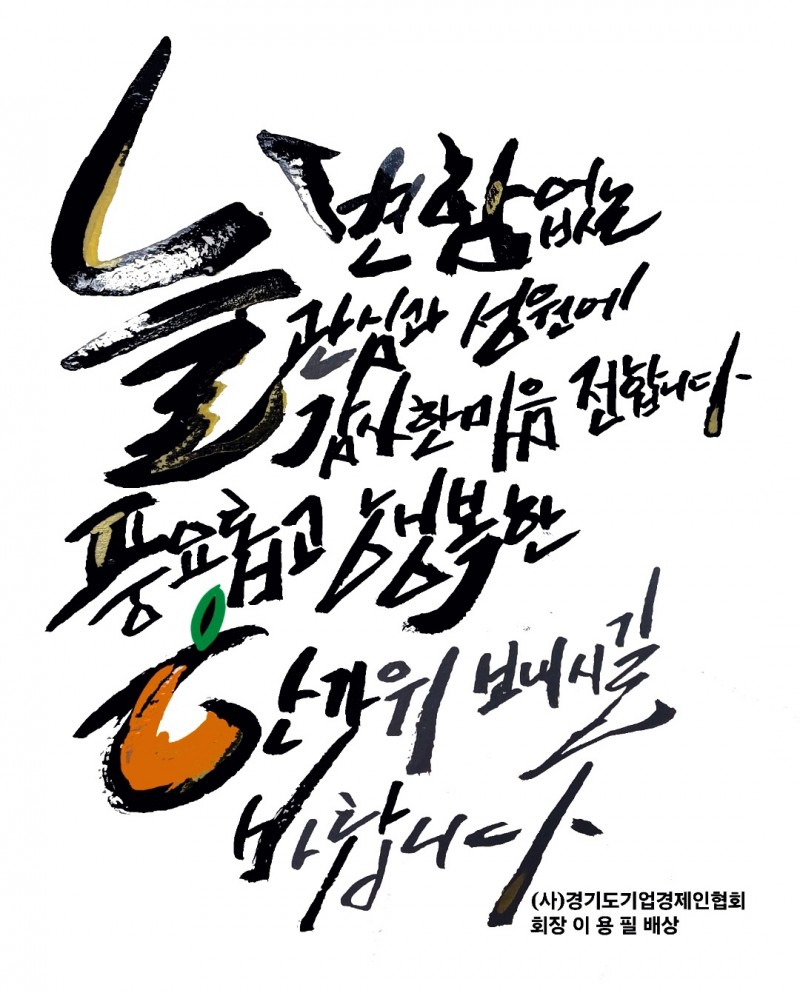 늘 변함없는
관심과 성원에
감사한마음 전합니다
풍요롭고 행복한
한가위 보내시길
바랍니다
(사)경기도기업경제인협회
회장 이 용 필 배상